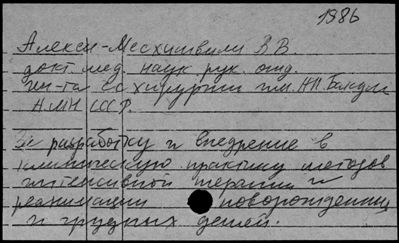 1986
Алекси-Месхишвили В.В.
докт. мед. наук рук. отд.
ин-та СС хирургии им. АН Бакул.
АМН СССР.
За разработку и внедрение в
клиническую практику методов
интенсивной терапии и
реанимации новорожденных
и грудных детей.